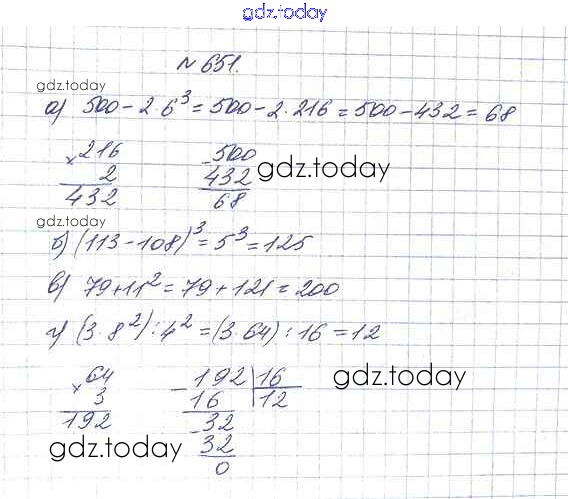 gdz.today
№ 651.
gdz.today
а) 500-2·6³=500-2·216=500-432=68
×216 -500
2 432
432 68
gdz.today
gdz.today
б) (113-108)³=5³=125
в) 79+11²=79+121=200
г) (3·8²):4²=(3·64):16=12
×64 -192|16
3 16 12
192 -32
32
0
gdz.today
gdz.today